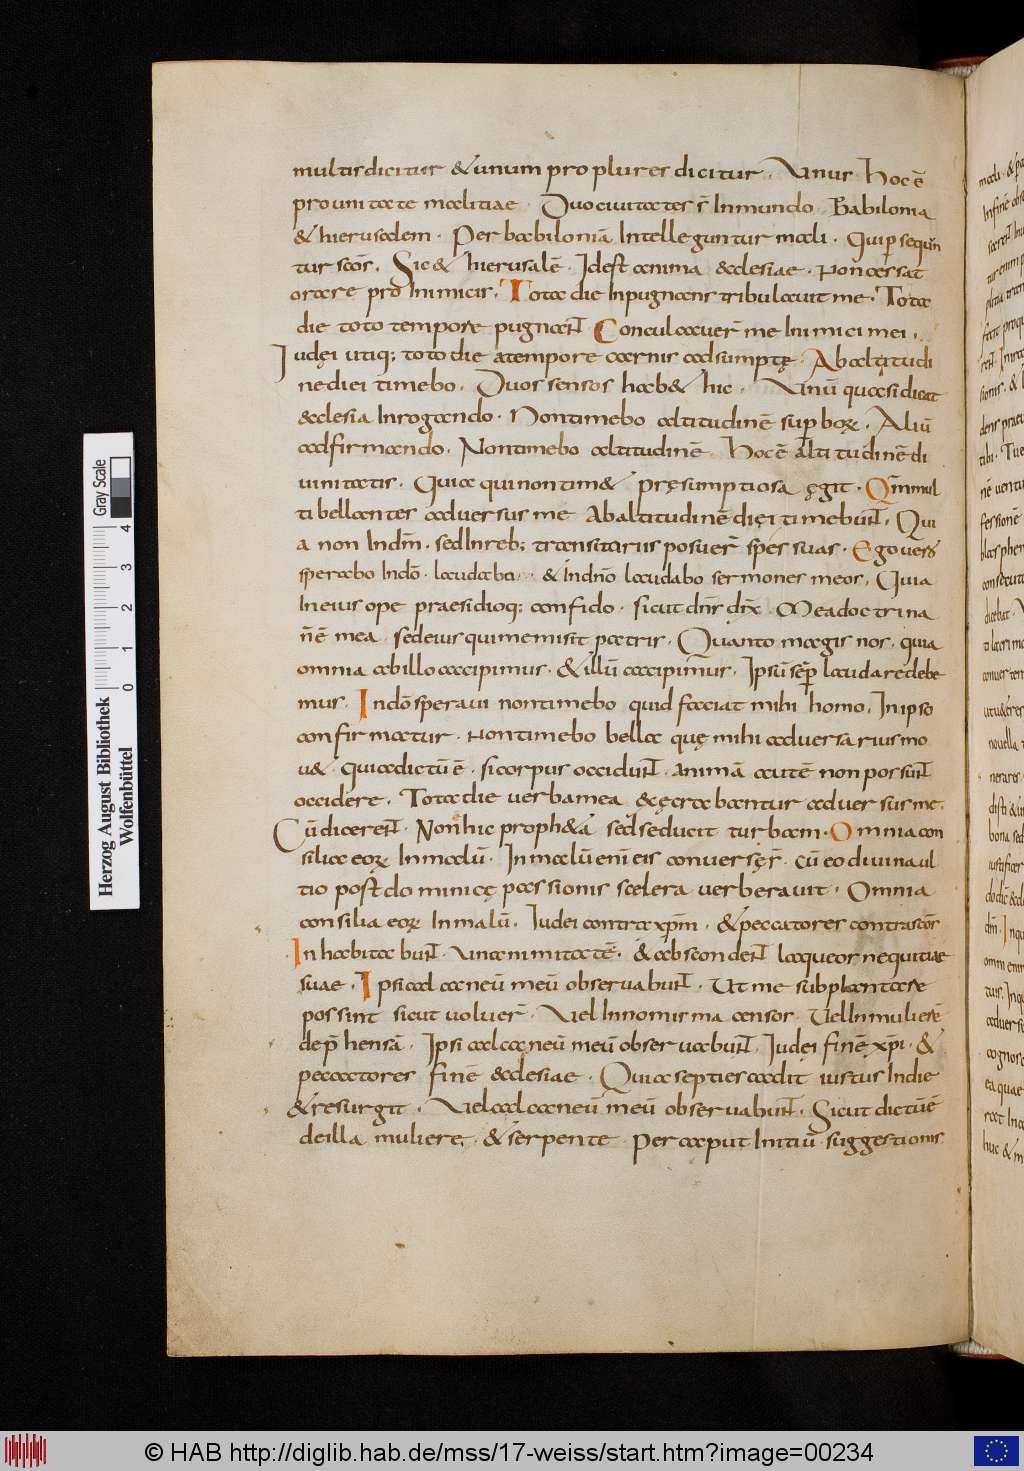 multis dicitur & unum pro plures dicitur. Unus. Hoc ē
pro unitate malitiae. Duo ciuitates s̄ In mundo. Babilonia
& hierusalem. Per babiloniā Intelleguntur mali. Qui psequn
tur scōs. Sic & hierusalē. Id est anima æcclesiae. Non cessat
orare pro Inimicis. Tota die Inpugnans tribulauit me. Tota
die toto tempore pugnant. Conculcauer̄ me Inimici mei.
Iudęi utiq; toto die a tempore carnis adsumptę. Ab altitudi
ne diei timebo. Duos sensos hab& hic. Unū quasi dicat
æcclesia Inrogando. Non timebo altitudinē supbor̄. Aliū
adfirmando. Non timebo altitudinē. Hoc ē altitudinē di
uinitatis. Quia qui non tim& pręsumptiosa ęgit. Qm̄ mul
ti bellantes aduersus me Ab altitudinē dięi timebunt. Qui
a non In dm̄. sed In reb; transitoriis posuer̄ spēs suas. Ego uero
sperabo In dō. laudabo & In dn̄o laudabo sermones meos. Quia
In eius ope praesidioq; confido. sicut dn̄s dix̄ Mea doctrina
n̄ ē mea sed eius qui me misit patris. Quanto magis nos. quia
omnia ab illo accipimus. & illū accipimus. Ipsū semp̄ laudare debe
mus. In dō speraui non timebo quid faciat mihi homo. In ipso
confirmatur. Non timebo bella quę mihi aduersarius mo
u&. quia dictū ē. si corpus occidunt. animā autē non possunt
occidere. Tota die uerba mea &ęcrabantur aduersus me.
Cū dicerent. Non hic proph&a sed seducit turbam. Omnia con
silia eor̄ In malū. In malū enī eis conuersę r̄. cū eo diuina ul
tio post dominicę passionis scelera uerberauit. Omnia
consilia eor̄ In malū. Iudei contra xp̄m. & peccatores contra scōs
Inhabitabunt. Unanimitatē. & abscondent laqueos nequitiae
suae. Ipsi calcaneū meū obseruabunt. Ut me subplantare
possint sicut uoluer̄. Uel In nomis ma censor. Uel In mulierē
dep̄hensā. Ipsi calcaneū meū obseruabunt. Iudei finē xp̄i. &
peccatores finē æcclesiae. Quia septies cadit iustus In die
& resurgit. Uel calcaneū meū obseruabunt. Sicut dictū ē
de illa muliere. & serpente. Per caput Initiū suggestionis
Herzog August Bibliothek
Wolfenbüttel
Gray Scale
0 1 2 3 4
© HAB http://diglib.hab.de/mss/17-weiss/start.htm?image=00234